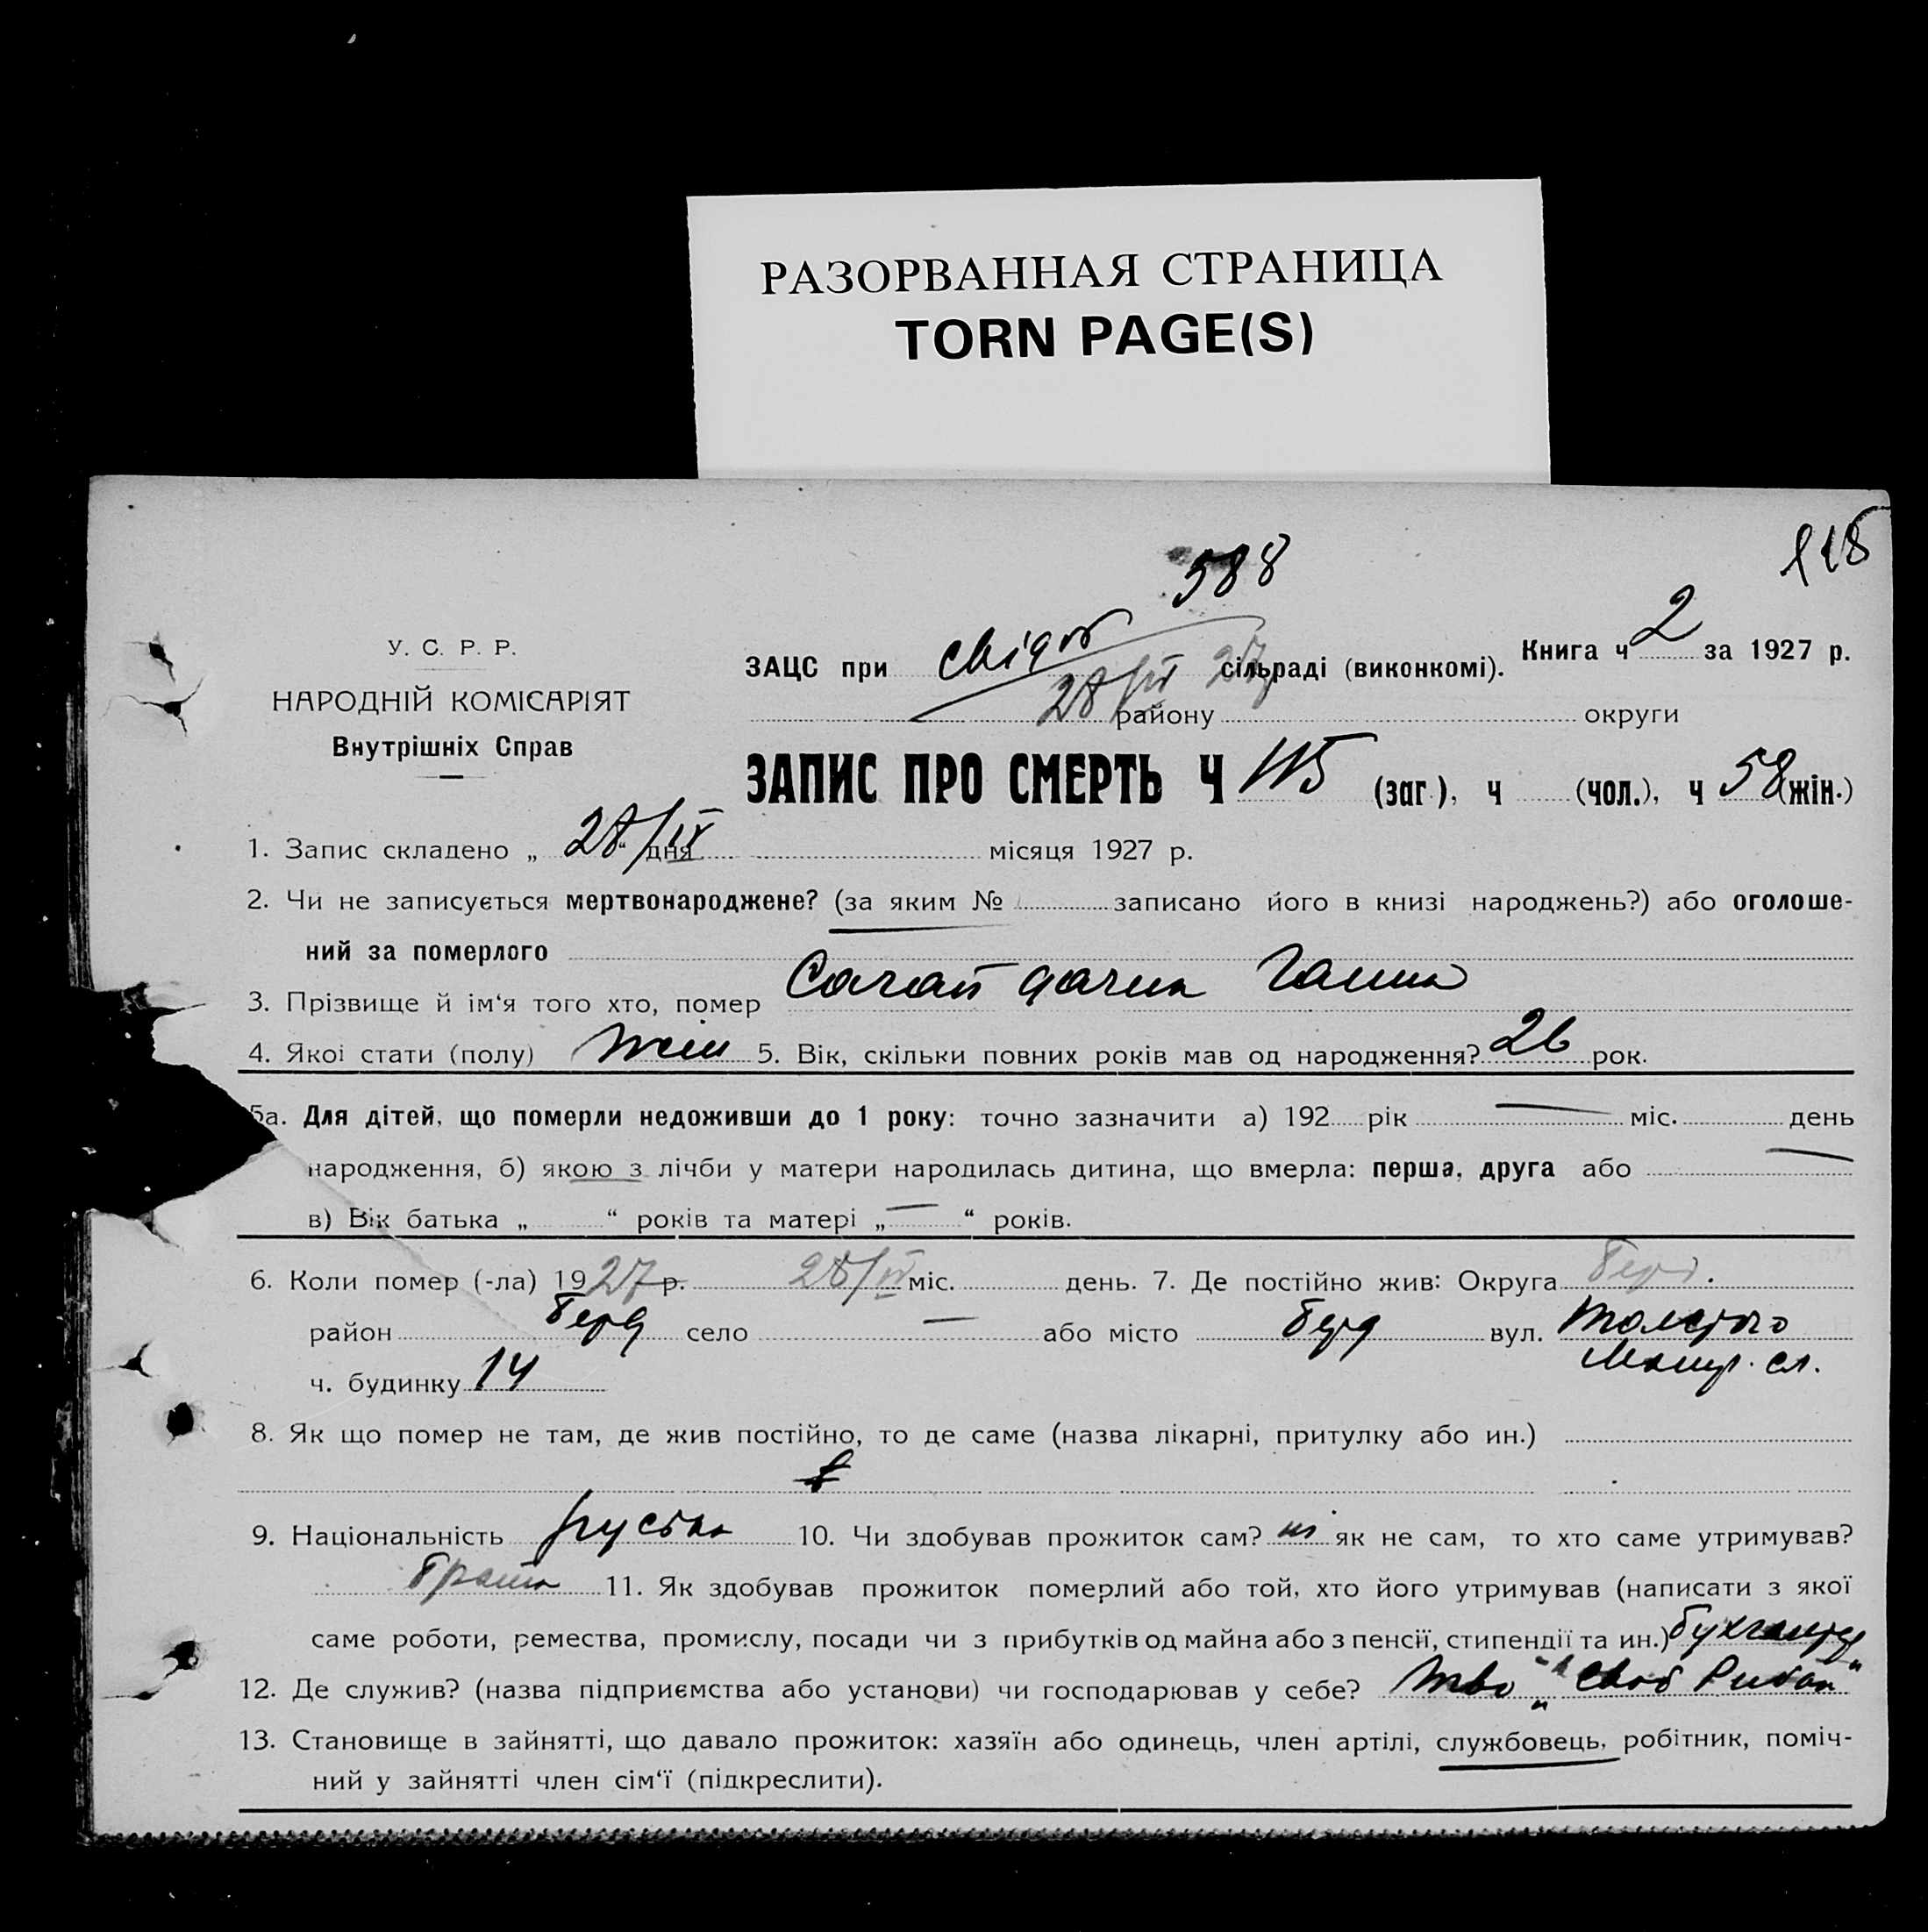 РАЗОРВАННАЯ СТРАНИЦА
TORN PAGE(S)
118
588
У. С. Р. Р.
НАРОДНІЙ КОМІСАРІЯТ
Внутрішніх Справ
ЗАЦС при сільраді (виконкомі). Книга ч 2 за 1927 р.
28/IX 27
району округи
ЗАПИС ПРО СМЕРТЬ Ч 115 (заг.), ч (чол.), ч 58 (жін.)
1. Запис складено „ 28/IX “ дня місяця 1927 р.
2. Чи не записується мертвонароджене? (за яким № записано його в книзі народжень?) або оголоше-
ний за померлого
3. Прізвище й ім‘я того хто, помер Ганна
4. Якоі стати (полу) жін 5. Вік, скільки повних років мав од народження? 26 рок.
5а. Для дітей, що померли недоживши до 1 року: точно зазначити а) 192 рік — міс. день
народження, б) якою з лічби у матери народилась дитина, що вмерла: перша, друга або —
в) Вік батька „ “ років та матері „ — “ років.
6. Коли помер (-ла) 1927 р. міс. день. 7. Де постійно жив: Округа Берд.
район Берд село — або місто Берд вул. Толстого
ч. будинку 14
8. Як що помер не там, де жив постійно, то де саме (назва лікарні, притулку або ин.)
9. Національність руська 10. Чи здобував прожиток сам? ні як не сам, то хто саме утримував?
11. Як здобував прожиток померлий або той, хто його утримував (написати з якої
саме роботи, ремества, промислу, посади чи з прибутків од майна або з пенсії, стипендії та ин.) бухгалтер
12. Де служив? (назва підприємства або установи) чи господарював у себе? Т-во
13. Становище в зайнятті, що давало прожиток: хазяїн або одинець, член артілі, службовець, робітник, поміч-
ний у зайнятті член сім‘ї (підкреслити).